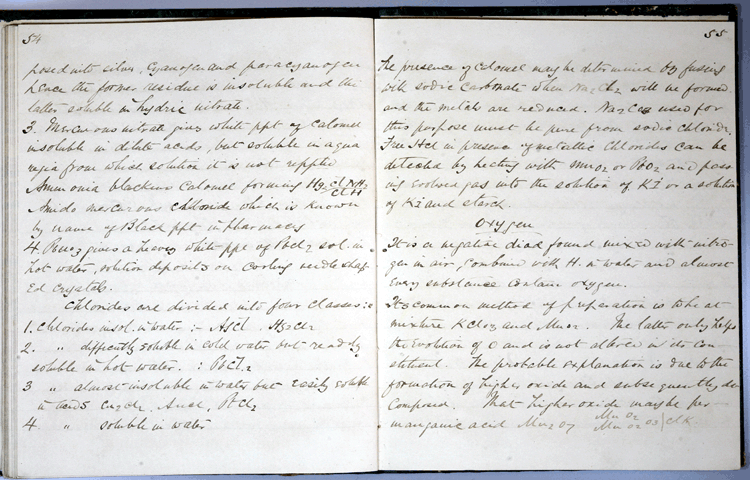 54
posed into silver, Cyanogen and paracyanogen
hence the former residue is insoluble and the
latter soluble in hydric nitrate.
3. Mercurous nitrate gives white ppt of Calomel
insoluble in dilute acids, but soluble in aqua
regia from which solution it is not reppted
Ammonia blackens Calomel forming Hg2 Cl NH2
Cl H
Amido mercurous chloride which is known
by name of Black ppt in pharmacy
4. gives a heavy white ppt of PbCl2 sol. in
hot water, solution deposits on cooling needle shap-
ed crystals.
Chlorides are divided into four classes :-
1. Chlorides insol. in water :- AgCl. Hg2Cl2
2. " difficultly soluble in cold water but readily
soluble in hot water. : PbCl2
3 " almost insoluble in water but easily soluble
in acids Cu2Cl2. AuCl, PtCl2
4. " soluble in water
55
The presence of Calomel may be determined by fusing
with sodic carbonate when Na2Cl2 will be formed
and the metals are reduced. Na2CO3 used for
this purpose must be pure from sodic chloride.
Free HCl in presence of metallic chlorides can be
detected by heating with MnO2 or PbO2 and pass-
ing evolved gas into the solution of KI or a solution
of KI and starch.
Oxygen
It is a negative diad found mixed with nitro-
gen in air, combined with H. in water and almost
every substance contain oxygen.
Its common method of preparation is to heat
mixture KClO3 and MnO2. The latter only helps
the evolution of O and is not altered in its con-
stituent. The probable explanation is due to the
formation of higher oxide and subsequently de-
composed. That higher oxide may be per-
manganic acid Mn2O7 MnO2
MnO2O3 ClK